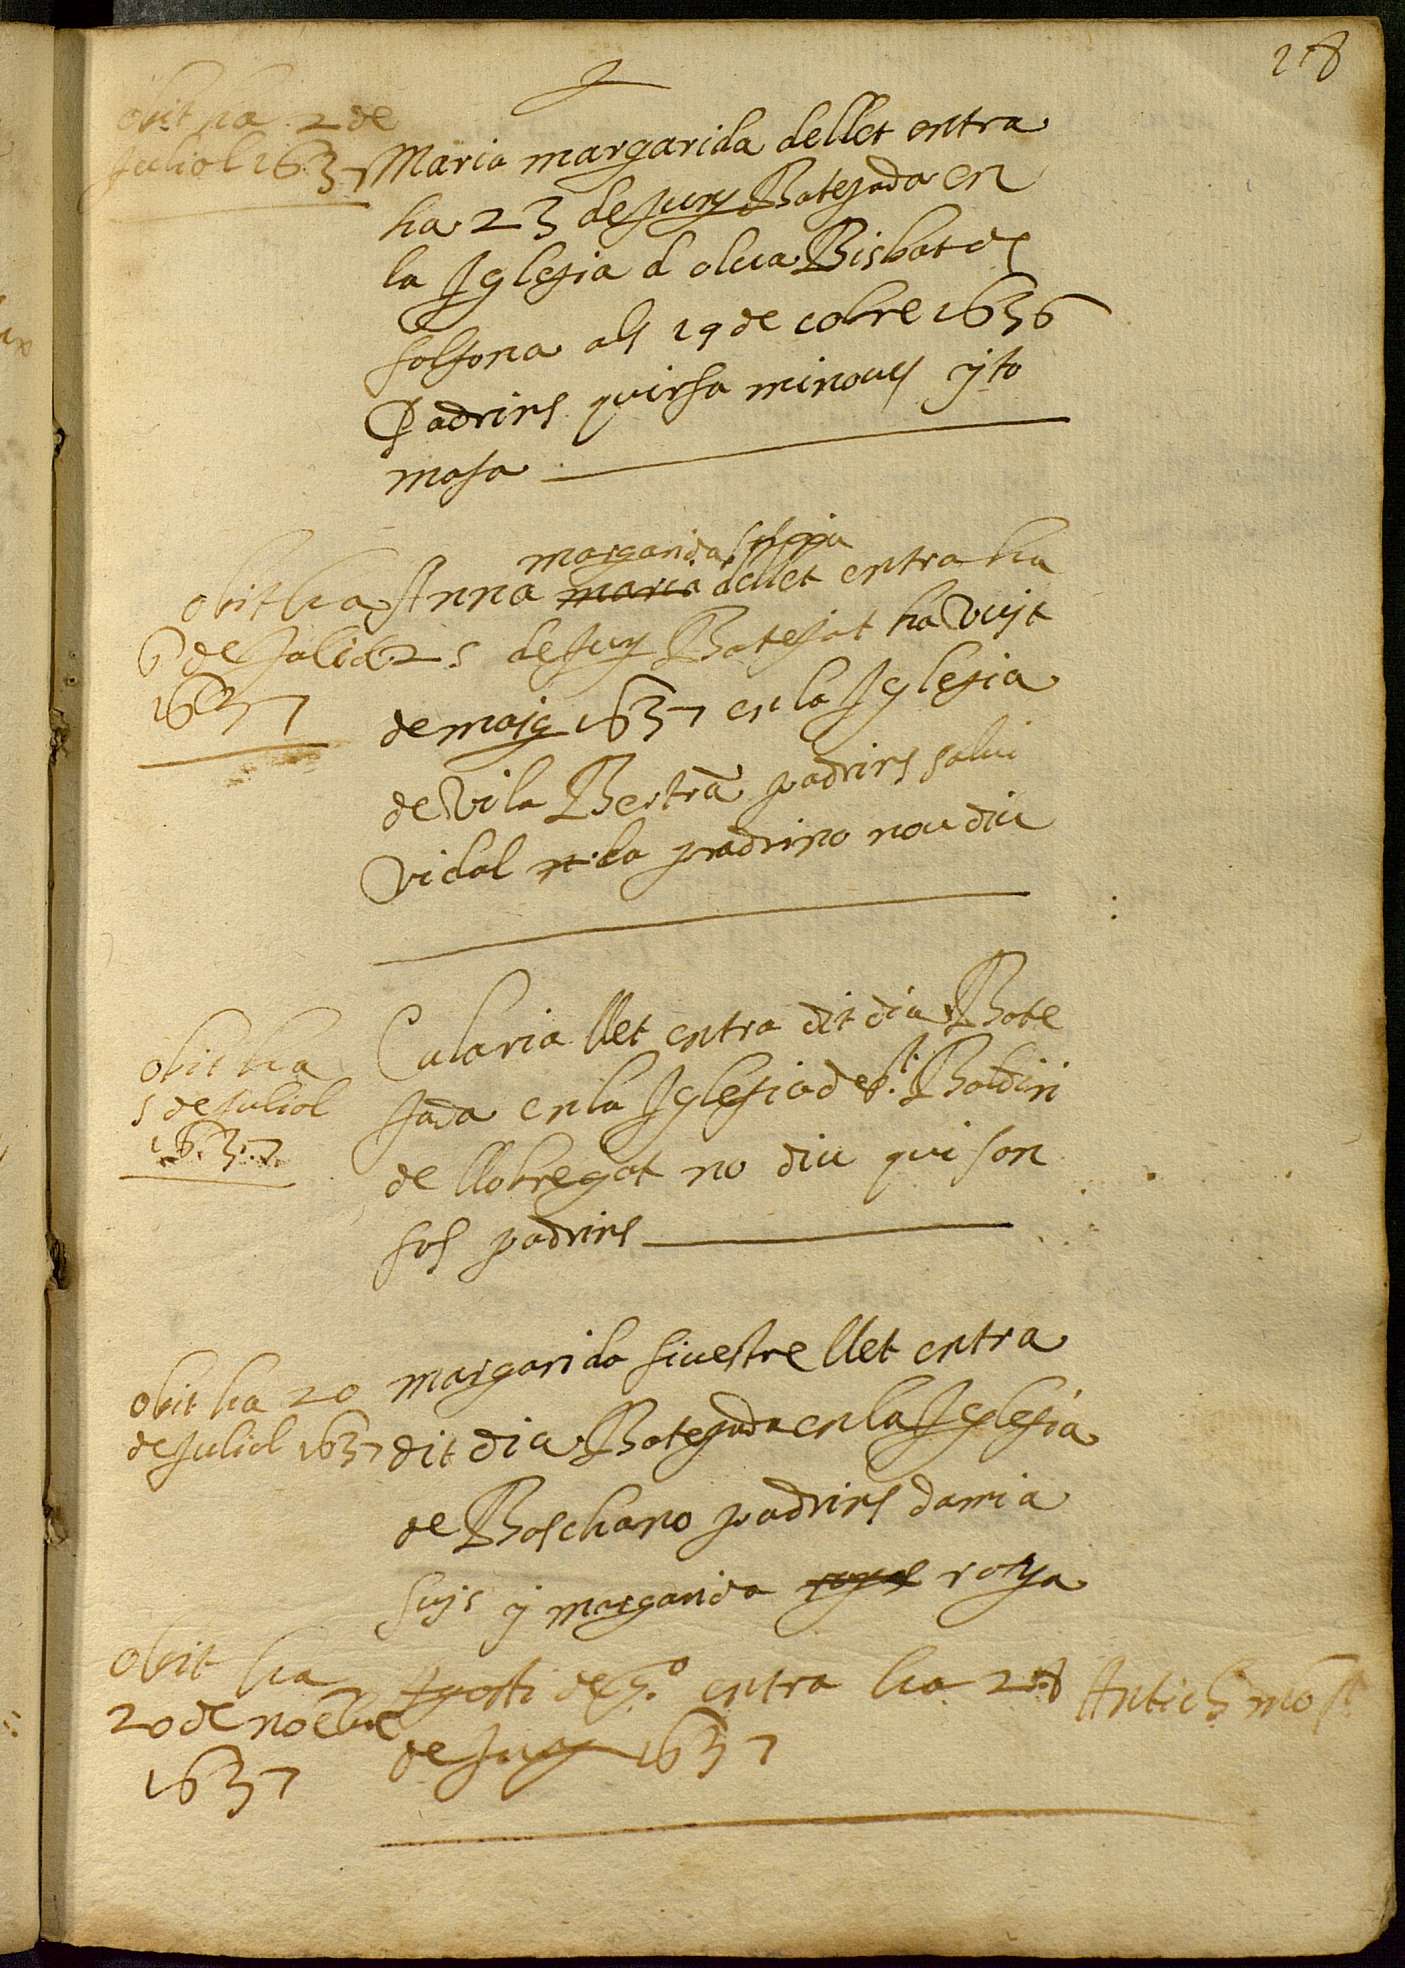 218
obit ha 2 de
Juliol 1637
Maria margarida dellet entra
ha 23 de Juny Batejada en
la Iglesia d oliva Bisbat de
solsona als 19 de 10bre 1636
Padrins quirsa minoves y to
masa
obit ha
6 de Joliol
1637
margarida
Anna maria dellet entra ha
25 de Juny Batejat ha vuyt
de maig 1637 en la Iglesia
de Vila Bertrā padrins salvi
vidal la padrina nou diu
obit ha
5 de Juliol
1637
Eularia llet entra dit dia Bate
jada en la Iglesia de St Baldiri
de llobregat no diu qui son
sos padrins
obit ha 20
de Juliol 1637
margarida sivestre llet entra
dit dia Batejada en la Iglesia
de Boschano padrins damia
suis y margarida roya
obit ha
20 de noēbre
1637
Agosti de entra ha 28
de Juny 1637
Antich